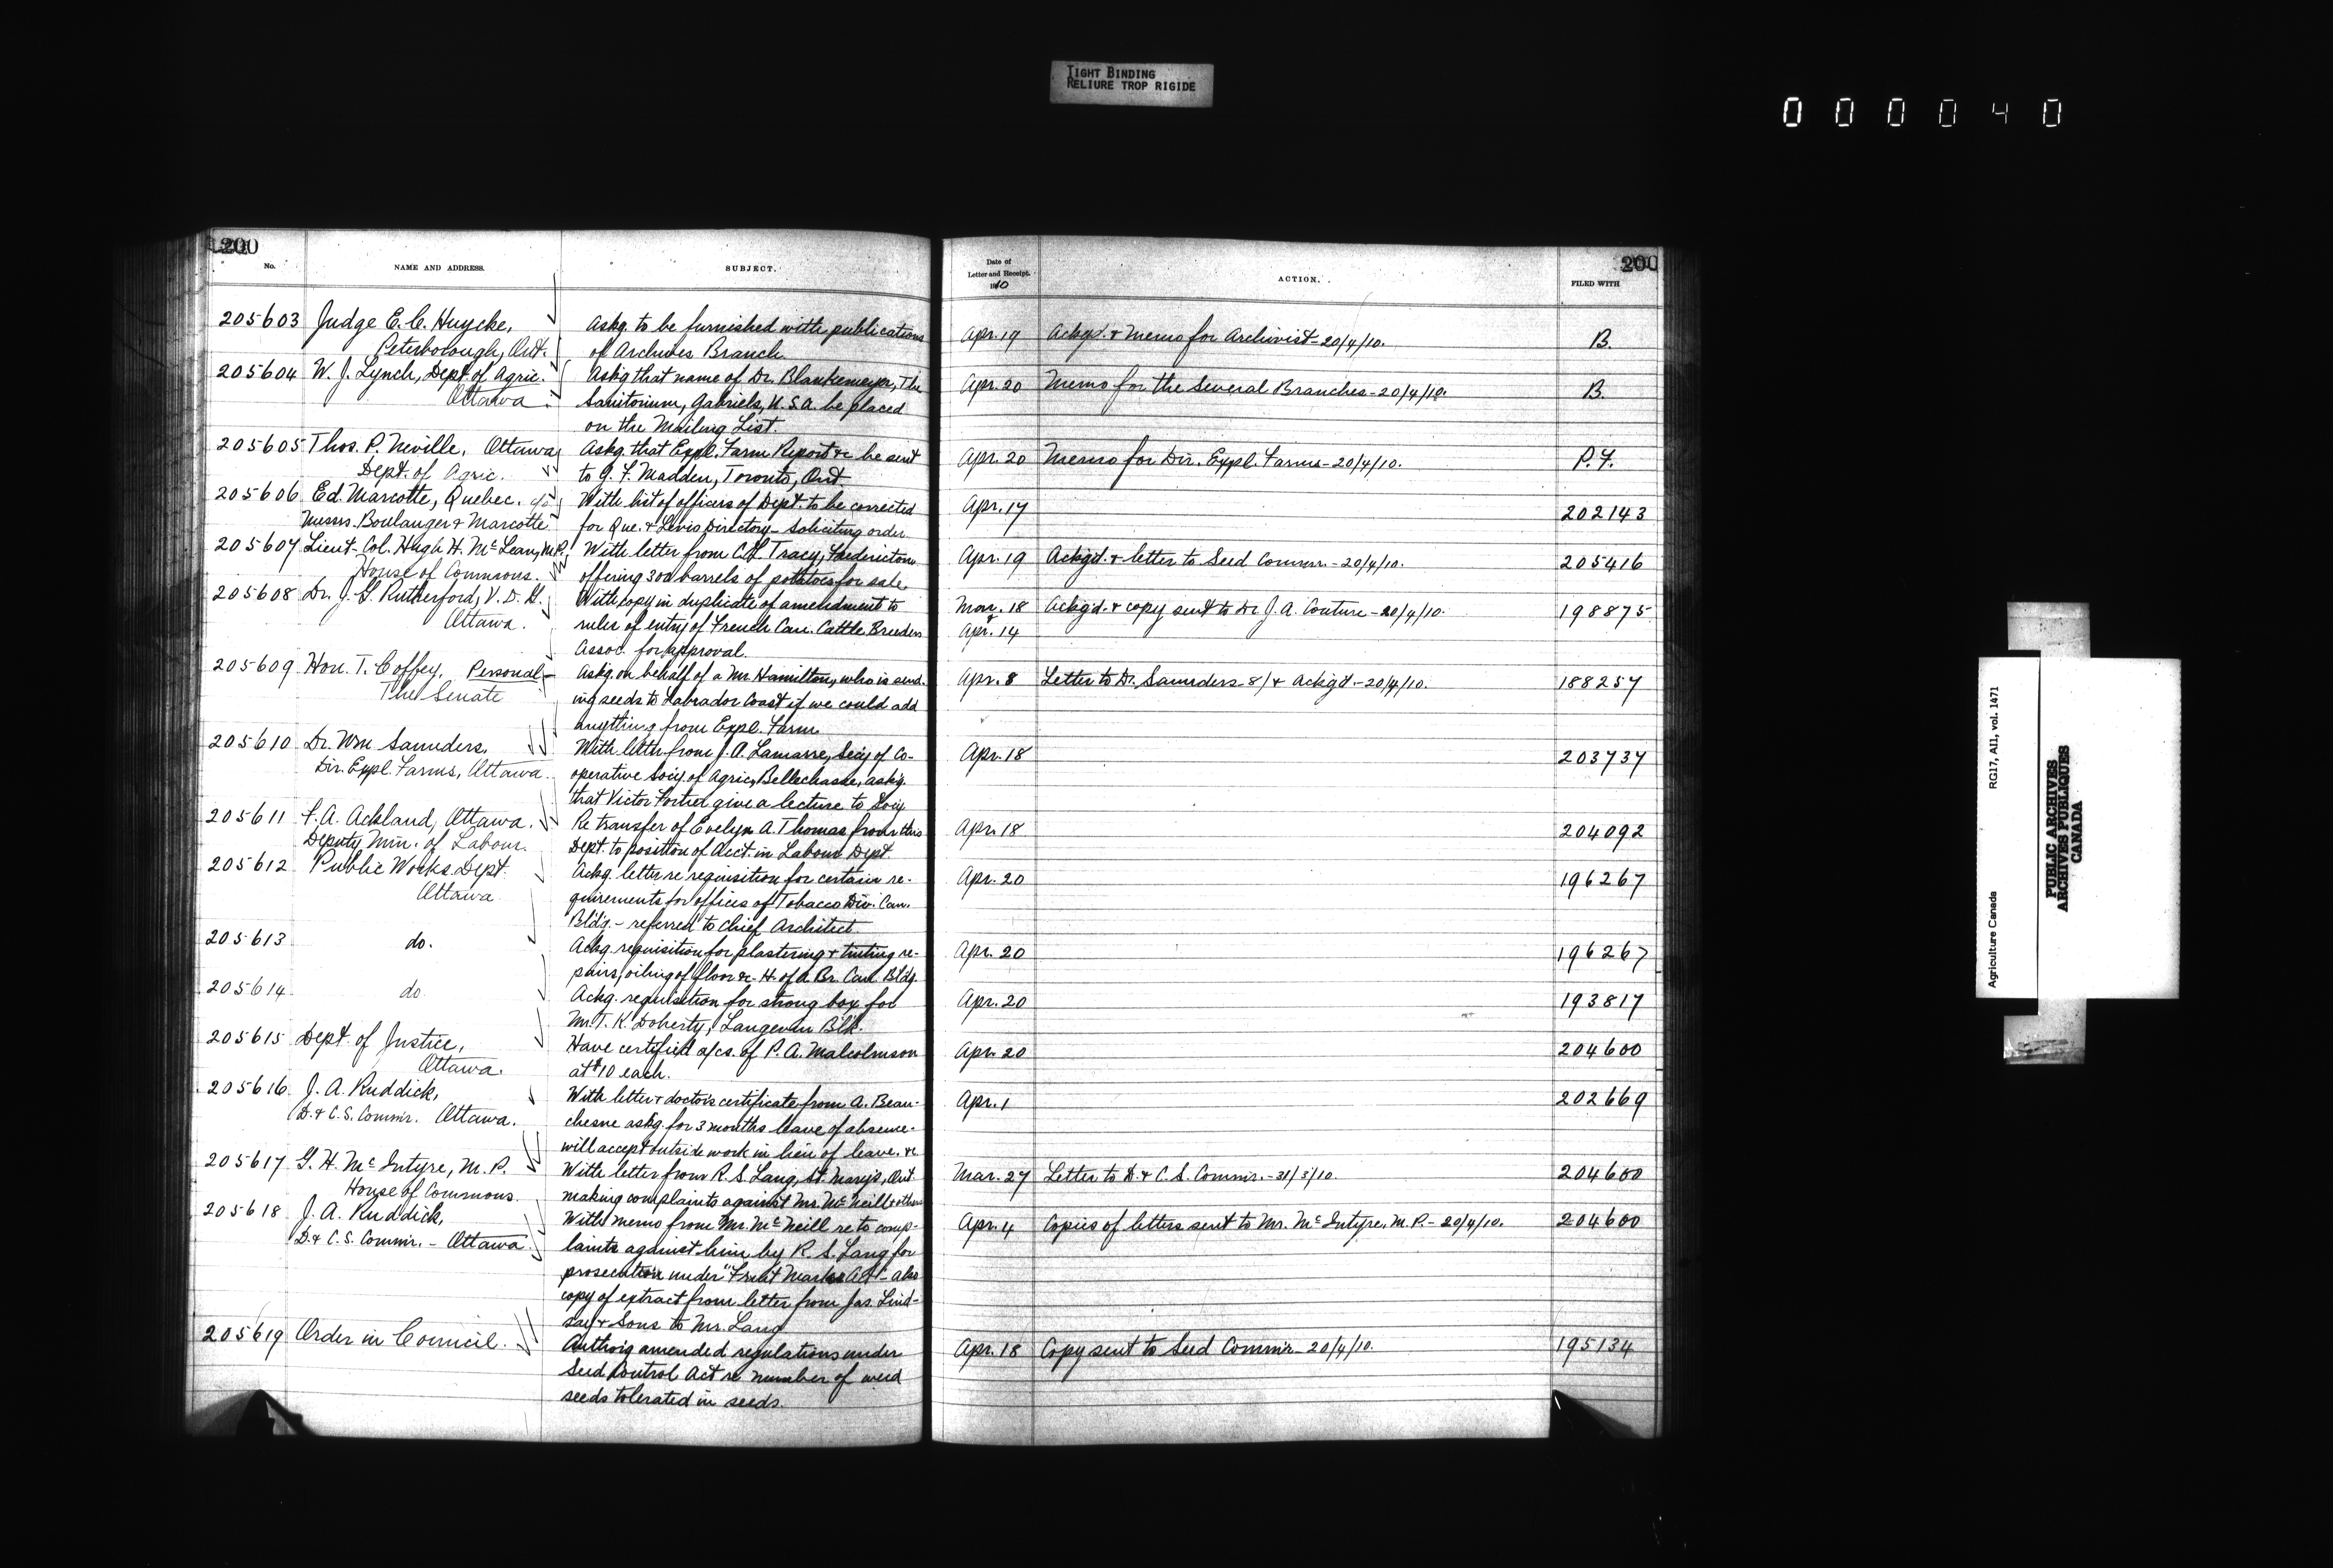 TIGHT BINDING
RELIURE TROP RIGIDE
000040
200
No.
NAME AND ADDRESS.
SUBJECT.
205603 Judge E. C. Huycke, Askg. to be furnished with publications
Peterborough, Ont. of Archives Branch.
205604 W. J. Lynch, Dept. of Agric. Askg that name of Dr. Blankemeyer, The
Ottawa. Sanitorium, Gabriels, U.S.A. be placed
on the Mailing List.
205605 Thos. P. Neville, Ottawa Askg. that Expl. Farm Report &c be sent
Dept. of Agric. to G. F. Madden, Toronto, Ont.
205606 Ed. Marcotte, Quebec. c/o With list of officers of Dept. to be corrected
Messrs. Boulanger & Marcotte for Que. & Levis Directory - Soliciting order.
205607 Lieut. Col. Hugh H. McLean, M.P. With letter from C. L. Tracy, Fredericton
House of Commons. offering 300 barrels of potatoes for sale.
205608 Dr. J. G. Rutherford, V. D. G. With copy in duplicate of amendment to
Ottawa. rules of entry of French Can. Cattle Breeders
Assoc. for approval.
205609 Hon. T. Coffey. Personal - Askg. on behalf of a Mr. Hamilton, who is send-
The Senate ing seeds to Labrador Coast if we could add
anything from Expl. Farm.
205610 Dr. Wm Saunders, With letter from J. A. Lamarre, Secy of Co-
Dir. Expl. Farms, Ottawa. operative Socy. of Agric, Bellechasse, askg.
that Victor Fortier give a lecture to Socy
205611 F. A. Ackland, Ottawa. Re transfer of Evelyn A. Thomas from this
Deputy Min. of Labour. Dept. to position of Acct. in Labour Dept.
205612 Public Works Dept. Ackg. letter re requisition for certain re-
Ottawa quirements for offices of Tobacco Div. Can.
Bldg. - referred to Chief Architect.
205613 do. Ackg. requisition for plastering & tinting re-
pairs, oiling of floor &c - H. of A. Br. Can. Bldg.
205614 do Ackg. requisition for strong box for
Mr. T. K. Doherty, Langevin Blk.
205615 Dept. of Justice, Have certified a/cs. of P. A. Malcolmson
Ottawa. at $10 each.
205616 J. A. Ruddick, With letter & doctor's certificate from A. Beau-
D. & C. S. Commr. Ottawa. chesne askg. for 3 months leave of absence -
will accept outside work in lieu of leave. &c
205617 G. H. McIntyre, M. P. With letter from R. S. Lang, St. Mary's, Ont
House of Commons. making complaints against Mr. McNeill & others
205618 J. A. Ruddick, With memo from Mr. McNeill re to comp-
D. & C. S. Commr. - Ottawa. laints against him by R. S. Lang for
prosecution under "Fruit Marks Act" - also
copy of extract from letter from Jas. Lind-
say & Sons to Mr. Lang
205619 Order in Council. Authorig amended regulations under
Seed Control Act re number of weed
seeds tolerated in seeds.
200
Date of
Letter and Receipt.
1910
ACTION.
FILED WITH
Apr. 19 Ackgd. & memo for Archivist - 20/4/10. B.
Apr. 20 Memo for the Several Branches - 20/4/10. B.
Apr. 20 Memo for Dir. Expl. Farms - 20/4/10. P.F.
Apr. 17 202143
Apr. 19 Ackgd. & letter to Seed Commr. - 20/4/10. 205416
Mar. 18 Ackgd. & copy sent to Dr J. A. Couture - 20/4/10. 198875
& Apr. 14
Apr. 8 Letter to Dr. Saunders - 8/ & Ackgd - 20/4/10. 188257
Apr. 18 203737
Apr. 18 204092
Apr. 20 196267
Apr. 20 196267
Apr. 20 193817
Apr. 20 204600
Apr. 1 202669
Mar. 27 Letter to D. & C. S. Commr. - 31/3/10. 204600
Apr. 4 Copies of letters sent to Mr. McIntyre, M. P. - 20/4/10. 204600
Apr. 18 Copy sent to Seed Commr - 20/4/10. 195134
Agriculture Canada RG17, A11, vol. 1471
PUBLIC ARCHIVES
ARCHIVES PUBLIQUES
CANADA